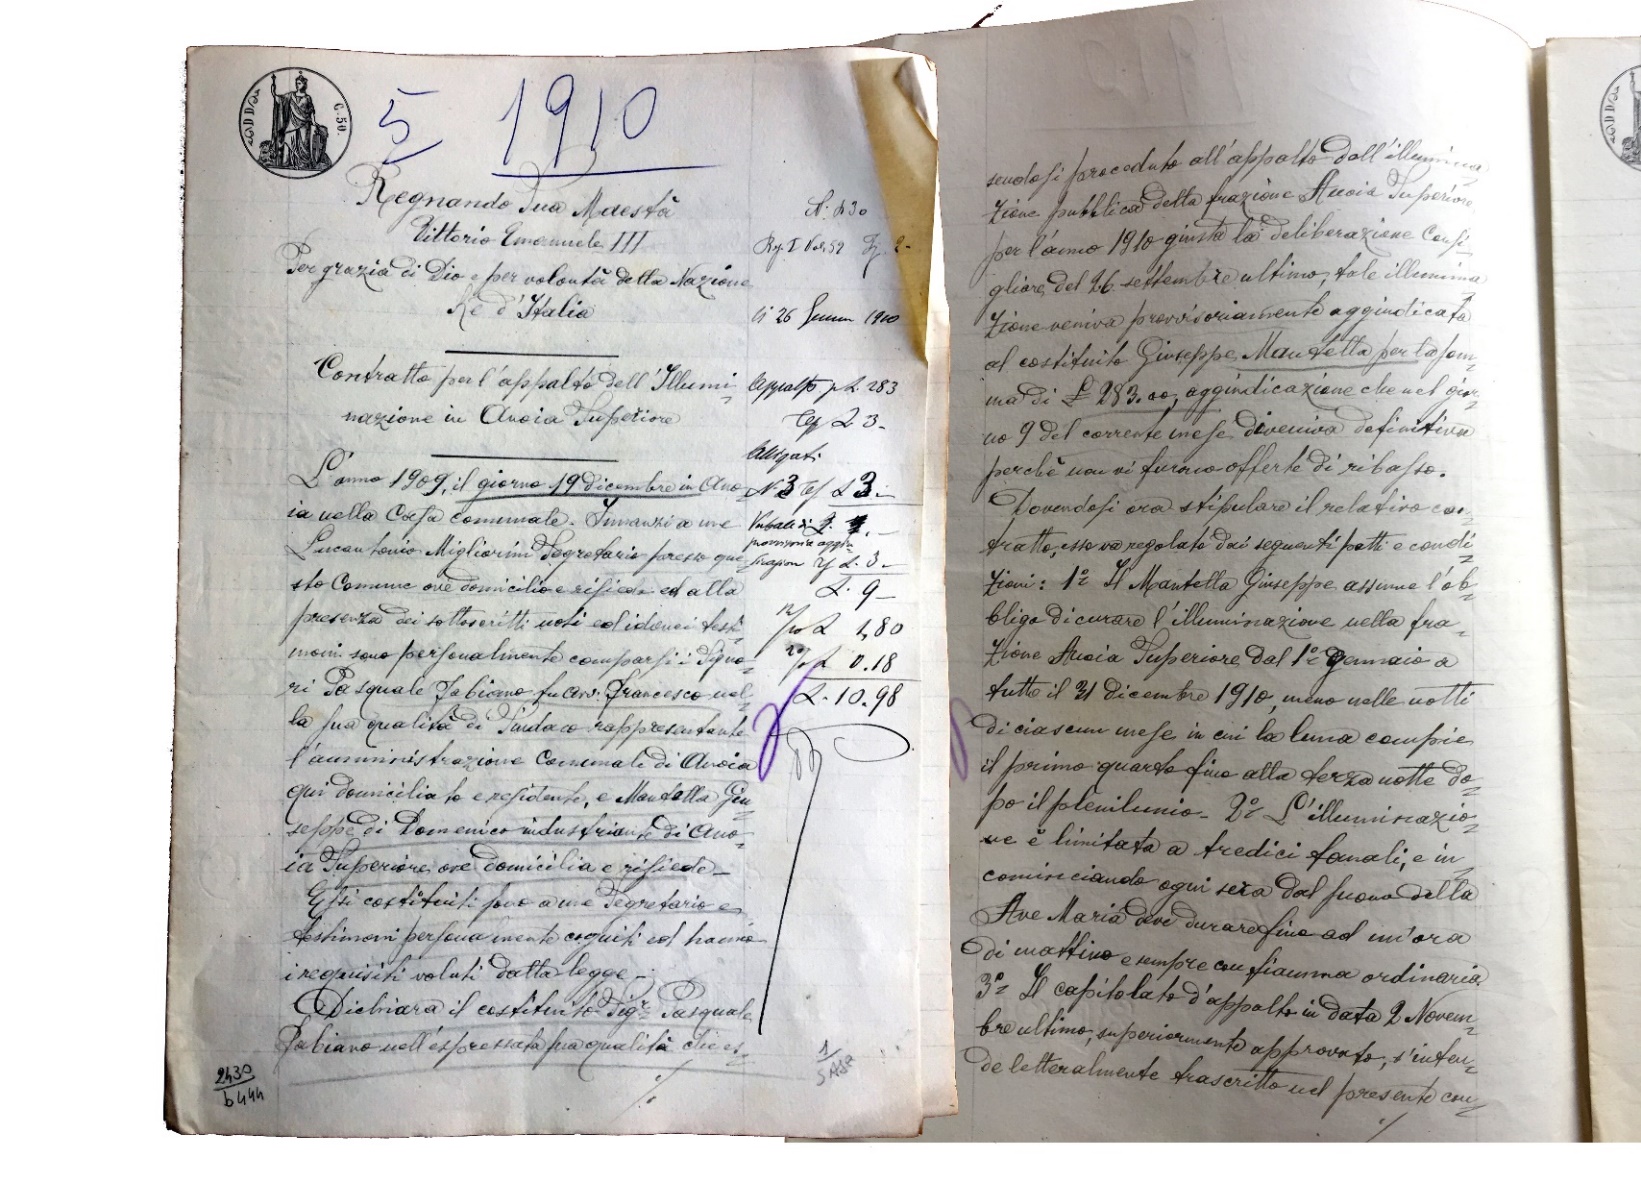 C. 50.
5 1910
Regnando Sua Maestà
Vittorio Emanuele III
Per grazia di Dio e per volontà della Nazione
Re d'Italia
Contratto per l'appalto dell'Illumi-
nazione in Anoia Superiore
L'anno 1909, il giorno 19 dicembre in Ano-
ia nella Casa comunale. Innanzi a me
Lucantonio Migliorini Segretario presso que-
sto Comune ove domicilio e risiedo ed alla
presenza dei sottoscritti noti ed idonei testi-
moni sono personalmente comparsi i Signo-
ri Pasquale Fabiano fu Cav. Francesco nel-
la sua qualità di Sindaco rappresentante
l'amministrazione Comunale di Anoia
qui domiciliato e residente, e Mantella Giu-
seppe di Domenico industriante di Ano-
ia Superiore ove domicilia e risiede-
Essi costituiti sono a me Segretario e
testimoni personalmente cogniti ed hanno
i requisiti voluti dalla legge-
Dichiara il costituito Sigr Pasquale
Fabiano nell'espressata sua qualità che es-
./.
N. 230
Reg. I Vol. 52
li 26 1910
Appalto p L. 283
L 3-
Alligati
N. 3 L 3-
Verbale di
provvisoria
L. 3-
L. 9-
L 1,80
L 0.18
L. 10.98
2430
b 444
sendosi proceduto all'appalto dell'illumina-
zione pubblica della frazione Anoia Superiore
per l'anno 1910 giusta la deliberazione Consi-
gliare del 26 settembre ultimo, tale illumina-
zione veniva provvisoriamente aggiudicata
al costituito Giuseppe Mantella per la som-
ma di £ 283.00, aggiudicazione che nel gior-
no 9 del corrente mese diveniva definitiva
perchè non vi furono offerte di ribasso.
Dovendosi ora stipulare il relativo con-
tratto, esso va regolato dai seguenti patti e condi-
zioni: 1º Il Mantella Giuseppe assume l'ob-
bligo di curare l'illuminazione nella fra-
zione Anoia Superiore dal 1º gennaio a
tutto il 31 dicembre 1910, meno nelle notti
di ciascun mese in cui la luna compie
il primo quarto fino alla terza notte do-
po il plenilunio- 2º L'illuminazio-
ne è limitata a tredici fanali, e in-
cominciando ogni sera dal suono della
Ave Maria deve durare fino ad un'ora
di mattino e sempre con fiamma ordinaria.
3º Il capitolato d'appalto in data 2 Novem-
bre ultimo, superiormente approvato, s'inten-
de letteralmente trascritto nel presente con-
./.